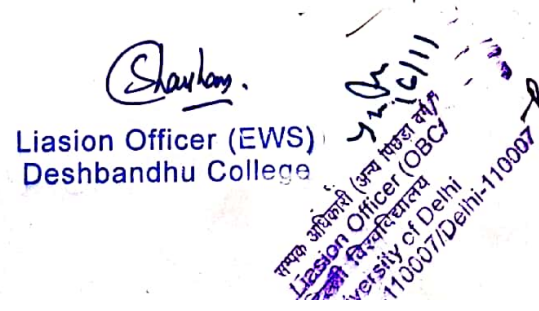 Liasion Officer (EWS)
Deshbandhu College
सम्पर्क अधिकारी (अन्य पिछड़ा वर्ग)/
Liasion Officer (OBC)
विश्वविद्यालय
University of Delhi
110007/Delhi-110007